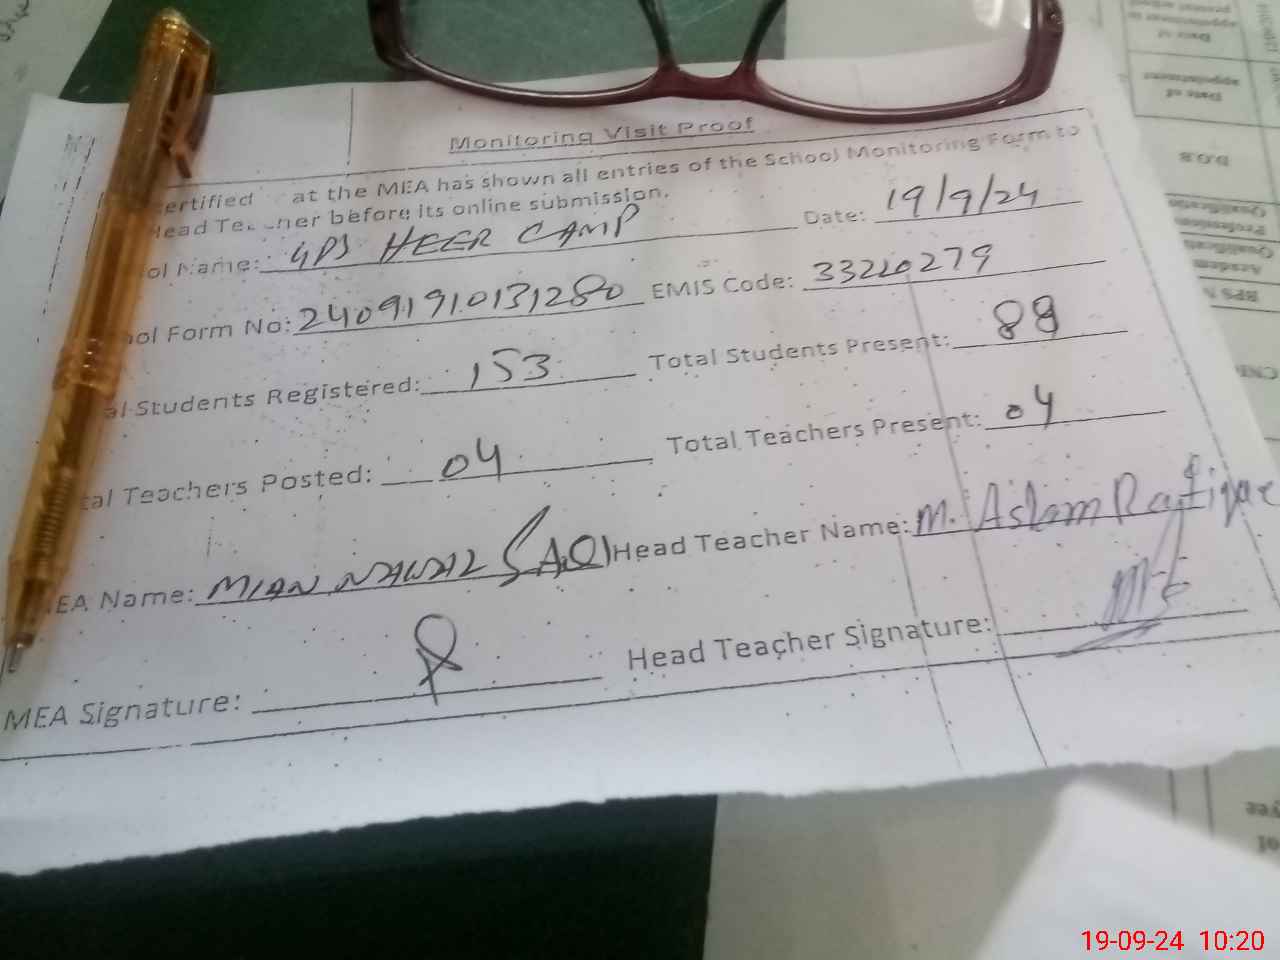 Monitoring Visit Proof
ertified at the MEA has shown all entries of the School Monitoring Form to
Head Te ner before its online submission.
ol Name: GPS HEER CAMP Date: 19/9/24
ol Form No: 24091910131280 EMIS Code: 33220279
al Students Registered: 153 Total Students Present: 88
tal Teachers Posted: 04 Total Teachers Present: 04
EA Name: MIAN NAWAZ SAQI Head Teacher Name: M. Aslam Rafique
MEA Signature: Head Teacher Signature:
19-09-24 10:20